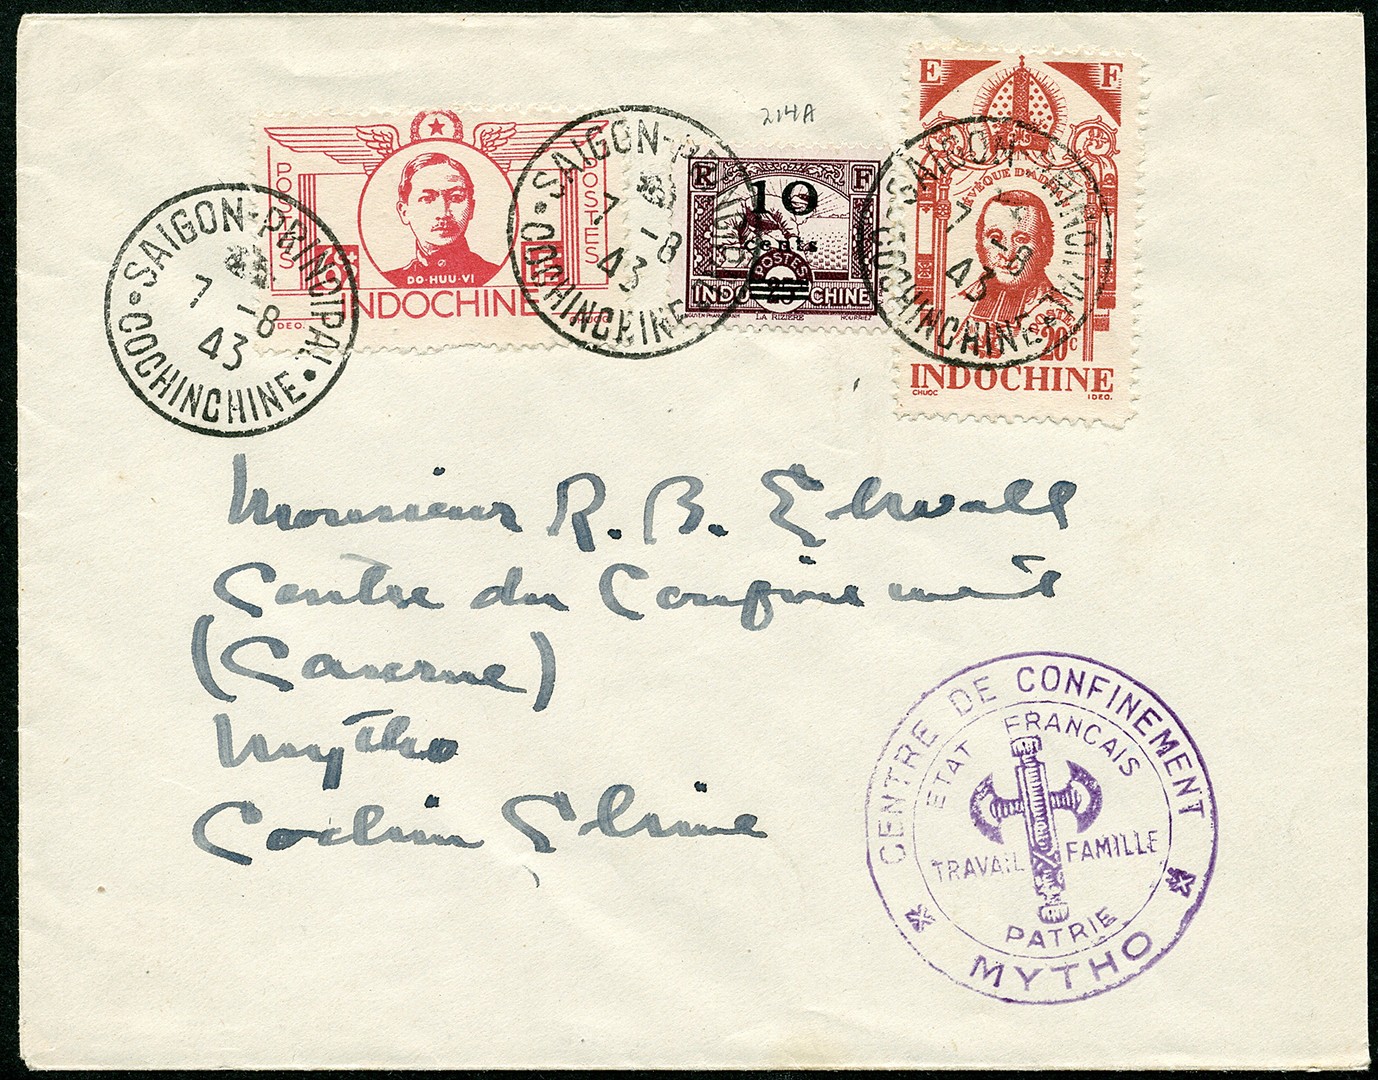 214A
POSTES
POSTES
6c
DO-HUU-VI
INDOCHINE
IDEO.
CHUOC
SAIGON-PRINCIPAL
7 -8
43
COCHINCHINE
SAIGON-PRINCIPAL
7 -8
43
COCHINCHINE
R F
10
cents
POSTES
25
INDOCHINE
LA RIZIERE
E F
ÉVÊQUE D'ADRAN
POSTES
20c
INDOCHINE
CHUOC IDEO.
SAIGON-PRINCIPAL
7 -8
43
COCHINCHINE
Monsieur R. B. Ehrwall
Centre du Confinement
(Caserne)
Mytho
Cochin Chine
CENTRE DE CONFINEMENT
ETAT FRANCAIS
TRAVAIL FAMILLE
PATRIE
MYTHO